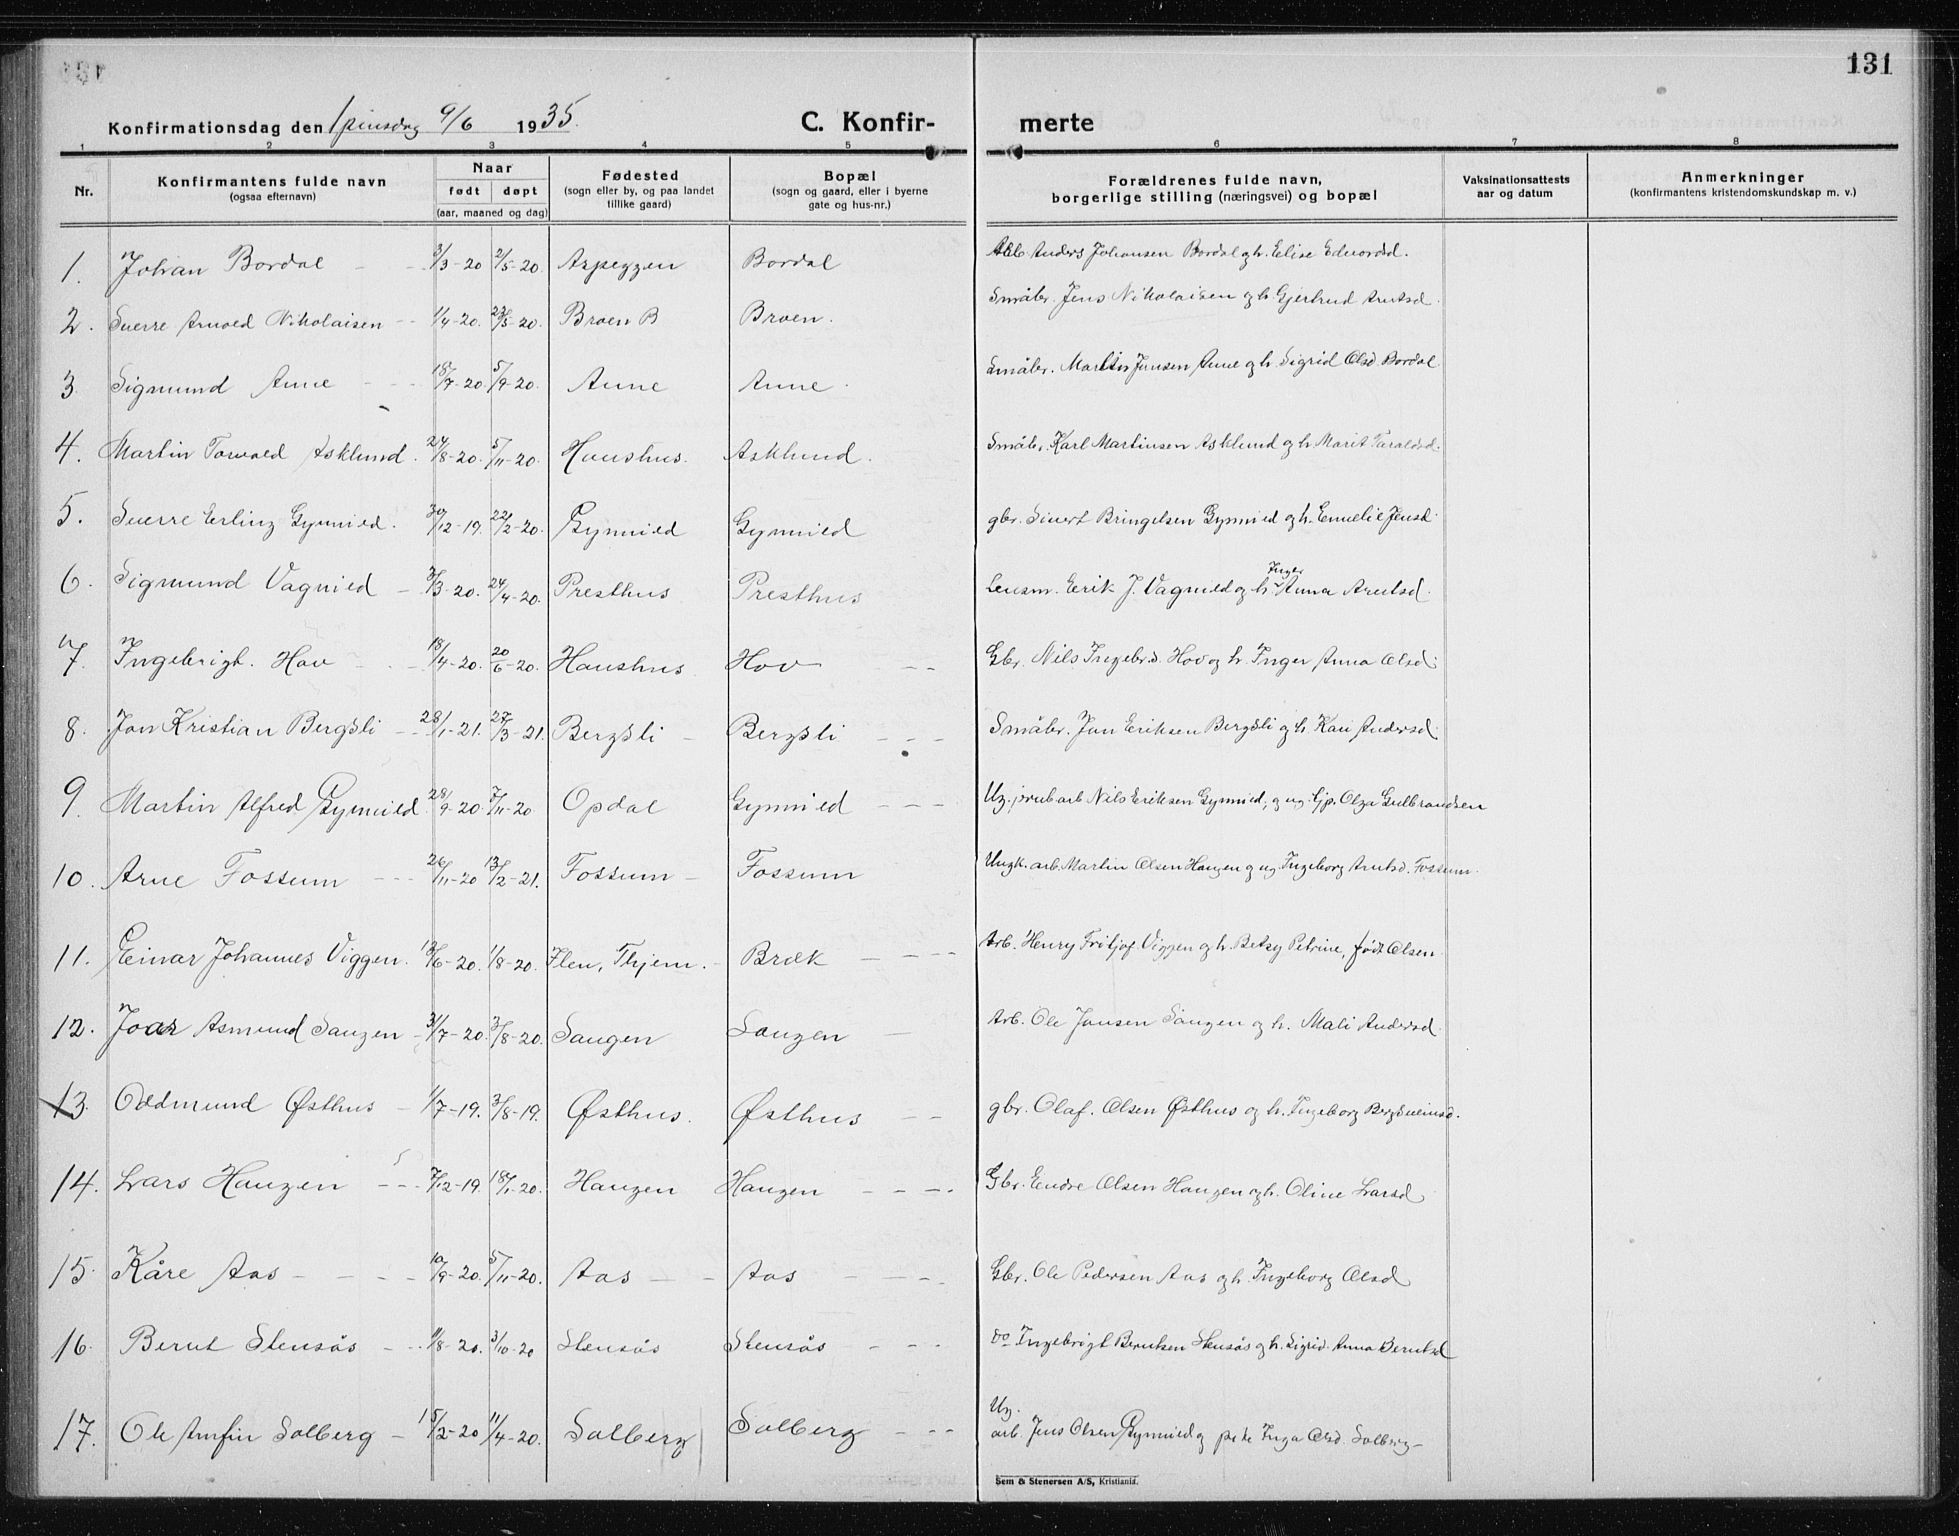 131
Konfirmationsdag den 1 pinsdag 9/6 1935.
C. Konfir- merte
1 2 3 4 5 6 7 8
Nr.
Konfirmantens fulde navn
(ogsaa efternavn)
Naar
født døpt
(aar, maaned og dag)
Fødested
(sogn eller by, og paa landet
tillike gaard)
Bopæl
(sogn og gaard, eller i byerne
gate og hus-nr.)
Forældrenes fulde navn,
borgerlige stilling (næringsvei) og bopæl
Vaksinationsattests
aar og datum
Anmerkninger
(konfirmantens kristendomskundskap m. v.)
1. Johan Bordal - - 3/3-20 2/5-20. Aspeggen Bordal Anders Johansen Bordal og h. Elise Edvardsd.
2. Sverre Arnold Nikolaisen - - 1/4-20. 23/5-20. Broen B Broen. Småbr. Jens Nikolaisen og h. Gjertrud Arntsd.
3. Sigmund Aune - - 18/7-20 5/9-20. Aune Aune. Småbr. Martin Jensen Aune og h. Sigrid Olsd Bordal
4. Martin Torvald Asklund. 24/8-20. 5/11-20. Haushus. Asklund. Småbr. Karl Martinsen Asklund og h. Marit Taraldsd.
5. Sverre Erling Gynnild. 30/12-19. 22/2-20. Gynnild Gynnild gbr. Sivert Bringelsen Gynnild og h. Emelie Jensd.
6. Sigmund Vagnild - 3/3-20. 24/4-20. Presthus Presthus Lensm. Erik J. Vagnild og h. Inger Anna Arntsd.
7. Ingebrigt. Hov - - 18/4-20. 20/6-20. Haushus Hov - - Gbr. Nils Ingebr.s. Hov og h. Inger Anna Olsd.
8. Jon Kristian Bergsli - - 28/1-21. 27/3-21. Bergsli - Bergsli - - - Småbr. Jon Eriksen Bergsli og h. Kari Andersd.
9. Martin Alfred Gynnild. 28/9-20. 7/11-20 Opdal Gynnild - - - Ug. jernb.arb Nils Eriksen Gynnild, og ug. tjp. Olga Gulbrandsen
10. Arne Fossum - - - 26/11-20 13/2-21. Fossum - Fossum Ungk. arb. Martin Olsen Haugen og ug Ingeborg Arntsd. Fossum.
11. Einar Johannes Viggen. 13/6-20. 1/8-20. Flen, Thjem. - Bræk - - - - Arb. Henry Fritjof Viggen og h. Betsy Petrine, født Olsen
12. Joar Asmund Saugen - 31/7-20. 3/8-20. Saugen Saugen - Arb. Ole Jonsen Saugen og h. Mali Andersd.
13. Oddmund Østhus - 1/7-19. 3/8-19. Østhus. Østhus - - gbr. Olaf. Olsen Østhus og h. Ingeborg Bergsveinsd.
14. Lars Haugen - - - 7/12-19. 18/1-20. Haugen Haugen - - - Gbr. Endre Olsen Haugen og h. Oline Larsd
15. Kåre Aas - - - - 10/9-20. 5/11-20. Aas - - Aas - - - Gbr. Ole Pedersen Aas og h. Ingeborg Olsd
16. Bernt Stensås - - 11/8-20. 3/10-20 Stensås Stensås - - - do Ingebrigt Berntsen Stensås og h. Sigrid Anna Berntsd
17. Ole Arnfin Solberg - 15/2-20 11/4-20. Solberg Solberg - - Ug.
arb. Jens Olsen Gynnild og Inga Olsd. Solberg -
Sem & Stenersen A/S, Kristiania.